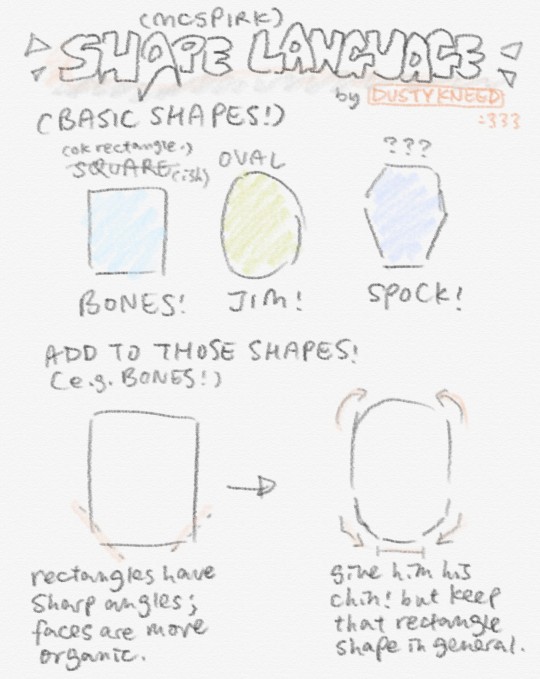 (MCSPIRK)
SHAPE LANGUAGE
by DUSTYKNEED
:333
(BASIC SHAPES!)
(ok rectangle.)
SQUARE(ish)
OVAL
???
BONES!
JIM!
SPOCK!
ADD TO THOSE SHAPES!
(e.g. BONES!)
rectangles have
sharp angles;
faces are more
organic.
give him his
chin! but keep
that rectangle
shape in general.